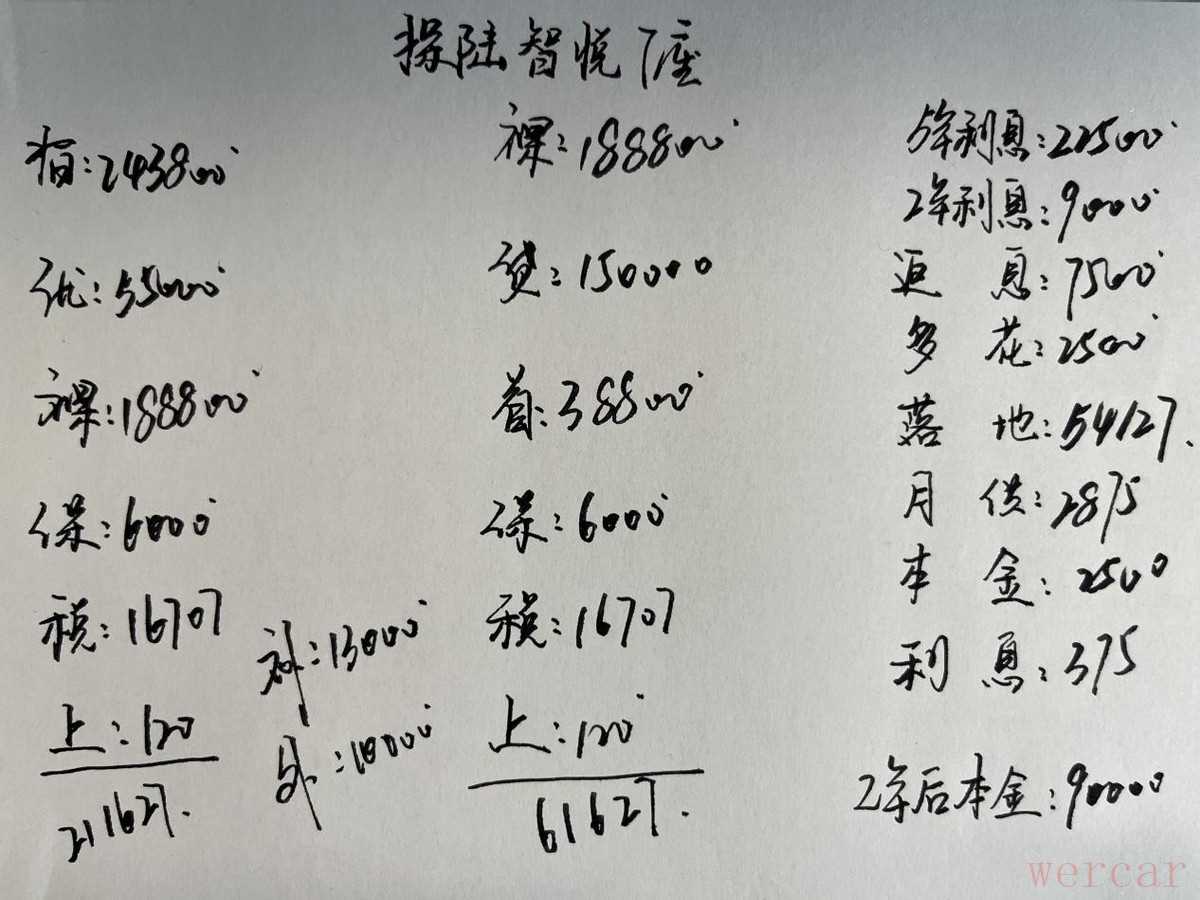 探陆智悦7座
指:243800
优:55000
裸:188800
保:6000
税:16707
上:120
211627.
补:13000
外:10000
裸:188800
贷:150000
首:38800
保:6000
税:16707
上:120
61627.
5年利息:22500
2年利息:9000
返息:7500
多花:2500
落地:54127.
月供:2875
本金:2500
利息:375
2年后本金:90000
wercar